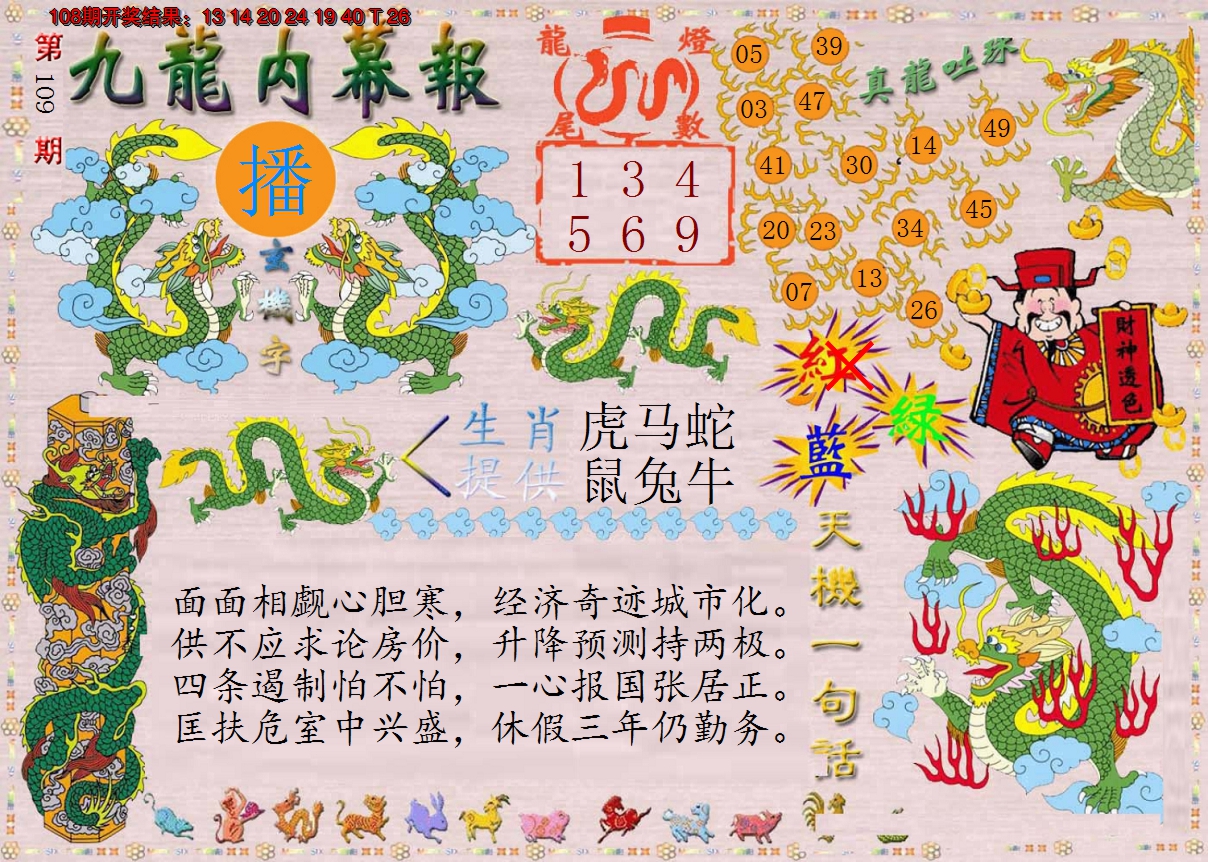 108期开奖结果：13 14 20 24 19 40 T 26
第109期
九龍内幕報
播
玄機字
龍燈
尾數
1 3 4
5 6 9
真龍吐珠
05
39
03
47
14
49
41
30
45
20
23
34
13
07
26
財神透色
紅
綠
藍
生肖 虎马蛇
提供 鼠兔牛
天機一句话
面面相觑心胆寒，经济奇迹城市化。
供不应求论房价，升降预测持两极。
四条遏制怕不怕，一心报国张居正。
匡扶危室中兴盛，休假三年仍勤务。